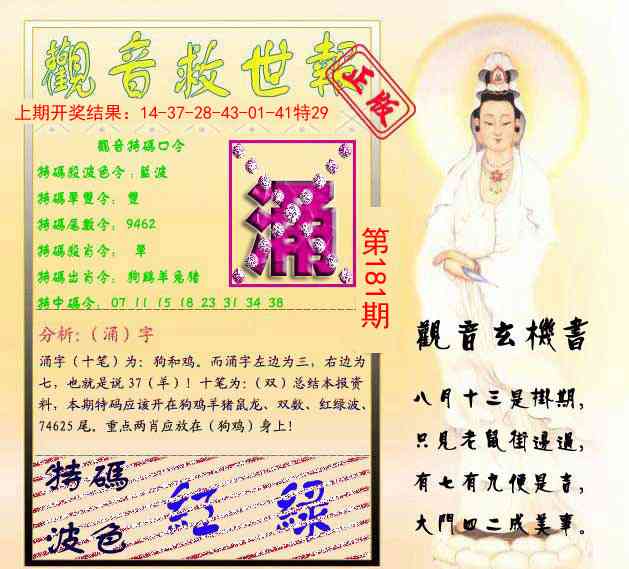 觀音救世報
正版
上期开奖结果：14-37-28-43-01-41特29
觀音特碼口令
特碼殺波色令：藍波
特碼單雙令：雙
特碼尾數令：9462
特碼殺肖令：單
特碼出肖令：狗鷄羊兔猪
特中碼令：07 11 15 18 23 31 34 38
涌
第181期
分析：（涌）字
涌字（十笔）为：狗和鸡。而涌字左边为三，右边为
七，也就是说 37（羊）！十笔为：（双）总结本报资
料，本期特码应该开在狗鸡羊猪鼠龙、双数、红绿波、
74625 尾。重点两肖应放在（狗鸡）身上！
特碼
波色
紅 綠
觀音玄機書
八月十三是掛期，
只見老鼠街邊過，
有七有九便是吉，
大門四二成美事。